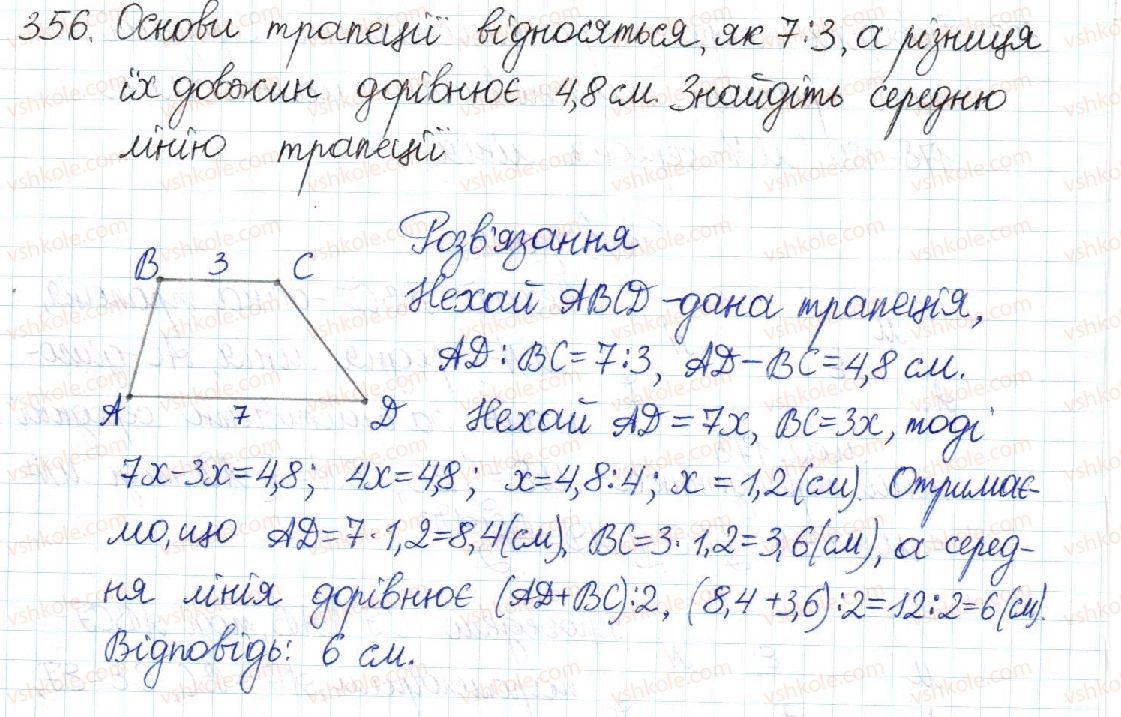 356. Основи трапеції відносяться, як 7:3, а різниця
їх довжин дорівнює 4,8 см. Знайдіть середню
лінію трапеції
Розв'язання
B 3 C
Нехай ABCD - дана трапеція,
AD : BC = 7:3, AD - BC = 4,8 см.
A 7 D
Нехай AD = 7x, BC = 3x, тоді
7x-3x=4,8; 4x=4,8; x=4,8:4; x = 1,2 (см). Отримає-
мо, що AD = 7 · 1,2 = 8,4 (см), BC = 3 · 1,2 = 3,6 (см), а серед-
ня лінія дорівнює (AD+BC):2, (8,4+3,6):2=12:2=6 (см).
Відповідь: 6 см.
vshkole.com